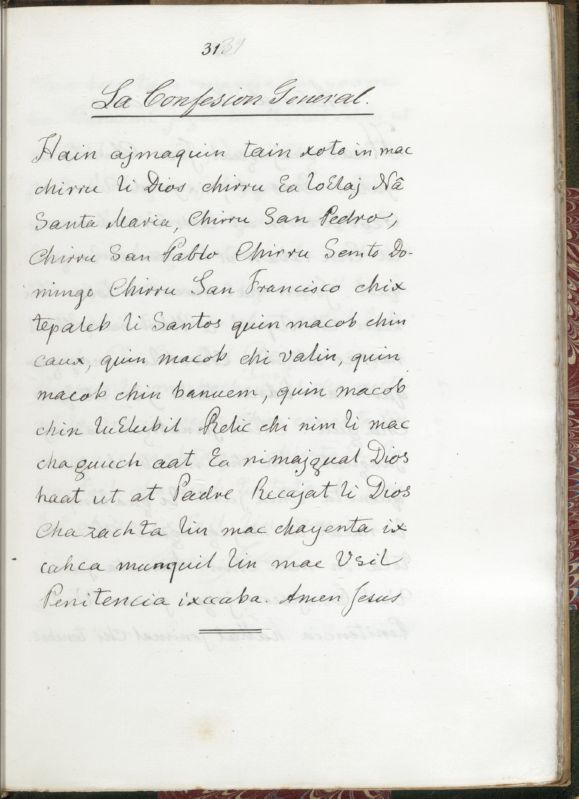 31 31
La Confesion General.
Hain ajmaquin tain xoto in mac
chirru li Dios chirru Ea loElaj Nâ
Santa Maria, Chirru San Pedro,
Chirru San Pablo Chirru Santo Do-
mingo Chirru San Francisco chix
tepaleb li Santos quin macob chin
caux, quin macob chi valin, quin
macob chin banuem, quin macob
chin luElubil Relic chi nim li mac
chaguuch aat Ea nimajqual Dios
haat ut at Padre Recajat li Dios
Cha zachta lin mac chayenta ix
cahca munquil lin mac Usil
Penitencia ixcaba. Amen Jesus